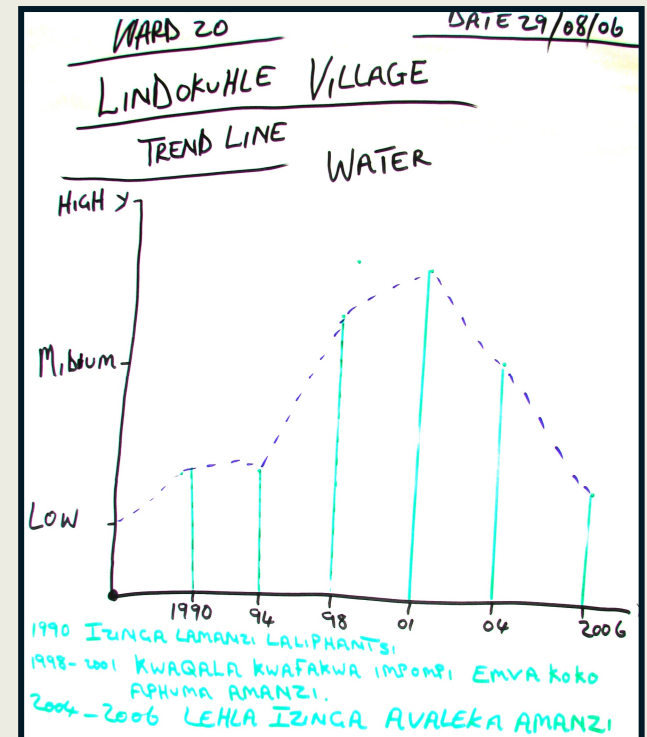 WARD 20
DATE 29/08/06
LINDOKUHLE VILLAGE
TREND LINE
WATER
HIGH Y
MIDIUM
LOW
1990 94 98 01 04 2006
1990 IZINGA LAMANZI LALIPHANTSI
1998-2001 KWAQALA KWAFAKWA IMPOMPI EMVA KOKO
APHUMA AMANZI.
2004-2006 LEHLA IZINGA AVALEKA AMANZI